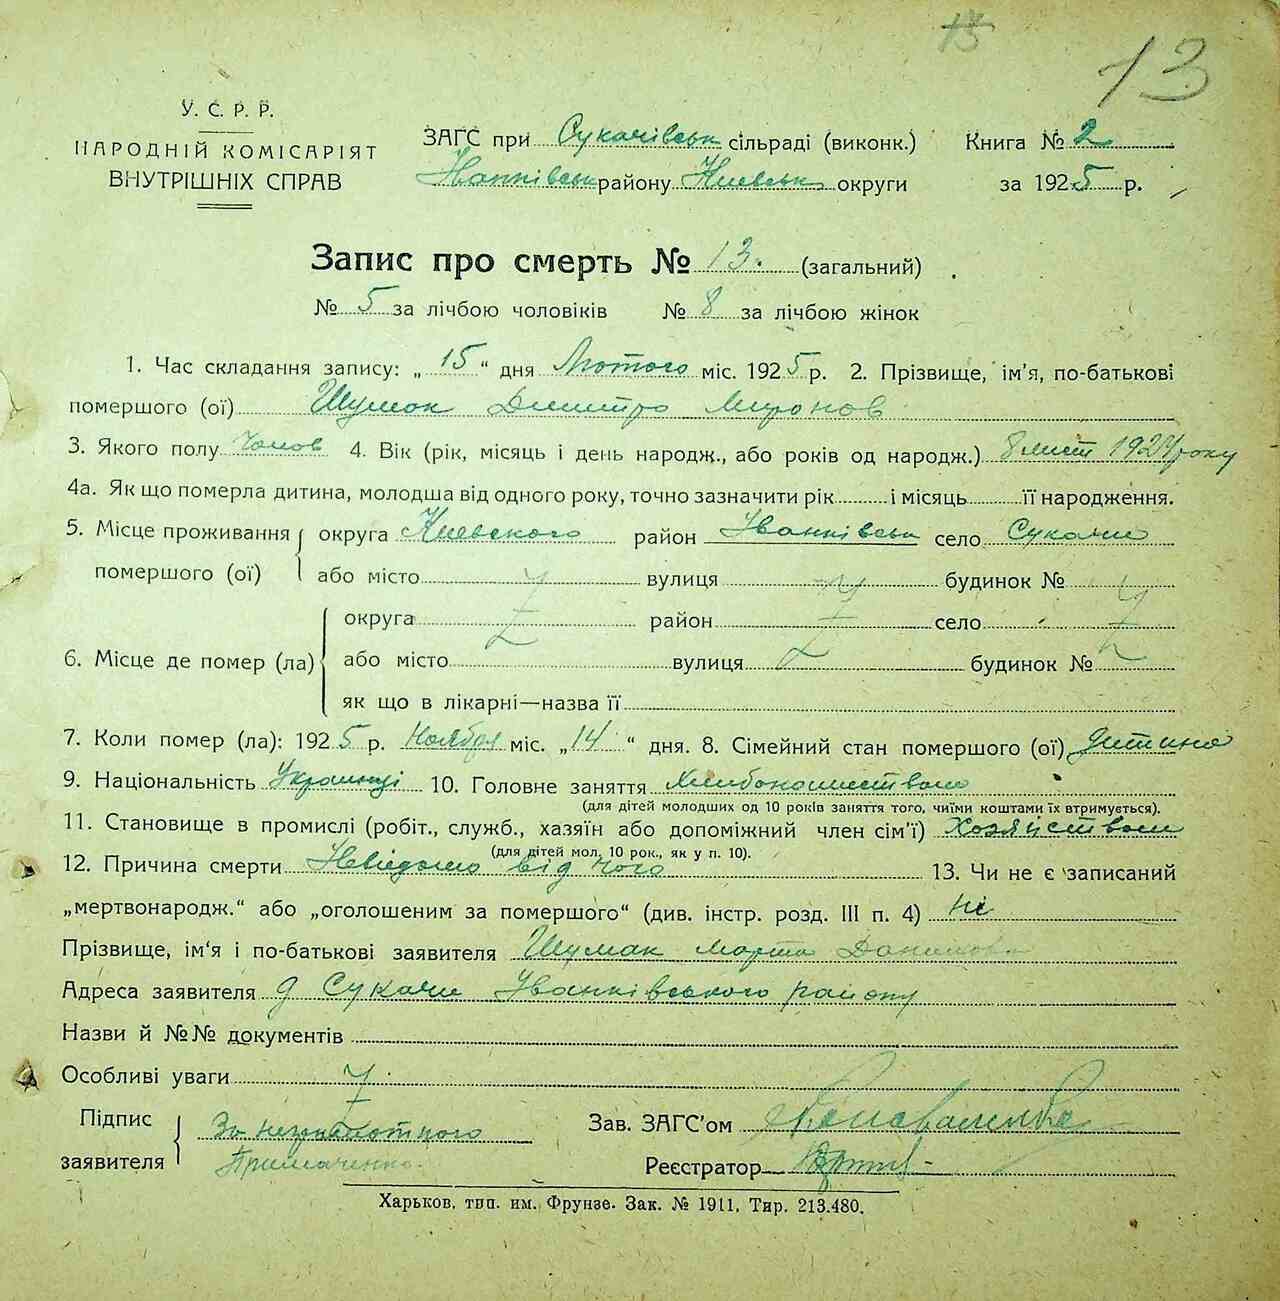 13
13
У. С. Р. Р.
НАРОДНІЙ КОМІСАРІЯТ
ВНУТРІШНІХ СПРАВ
ЗАГС при Сукачівськ сільраді (виконк.)
Іванківськ району Киевськ округи
Книга № 2
за 1925 р.
Запис про смерть № 13. (загальний)
№ 5 за лічбою чоловіків № 8 за лічбою жінок
1. Час складання запису: „ 15 “ дня Лютого міс. 1925 р. 2. Прізвище, ім'я, по-батькові
помершого (ої) Шумак Димитро Миронов
3. Якого полу Чолов 4. Вік (рік, місяць і день народж., або років од народж.) 8 лист 1924 року
4а. Як що померла дитина, молодша від одного року, точно зазначити рік і місяць її народження.
5. Місце проживання округа Киевского район Іванківськ село Сукачи
помершого (ої) або місто вулиця будинок №
округа район село
6. Місце де помер (ла) або місто вулиця будинок №
як що в лікарні—назва її
7. Коли помер (ла): 1925 р. Ноября міс. „14“ дня. 8. Сімейний стан помершого (ої) Дитина
9. Національність Украинці 10. Головне заняття
(для дітей молодших од 10 років заняття того, чиїми коштами їх втримується).
11. Становище в промислі (робіт., служб., хазяїн або допоміжний член сім'ї) Хозяйством
(для дітей мол. 10 рок., як у п. 10).
12. Причина смерти Невідомо від чого 13. Чи не є записаний
„мертвонародж.“ або „оголошеним за помершого“ (див. інстр. розд. III п. 4) ні
Прізвище, ім‘я і по-батькові заявителя Шумак Марта Данилова
Адреса заявителя д Сукачи Іванківського району
Назви й №№ документів
Особливі уваги
Підпис За неграмотного Зав. ЗАГС'ом
заявителя Примаченко. Реєстратор
Харьков, тип. им. Фрунзе. Зак. № 1911, Тир. 213.480.